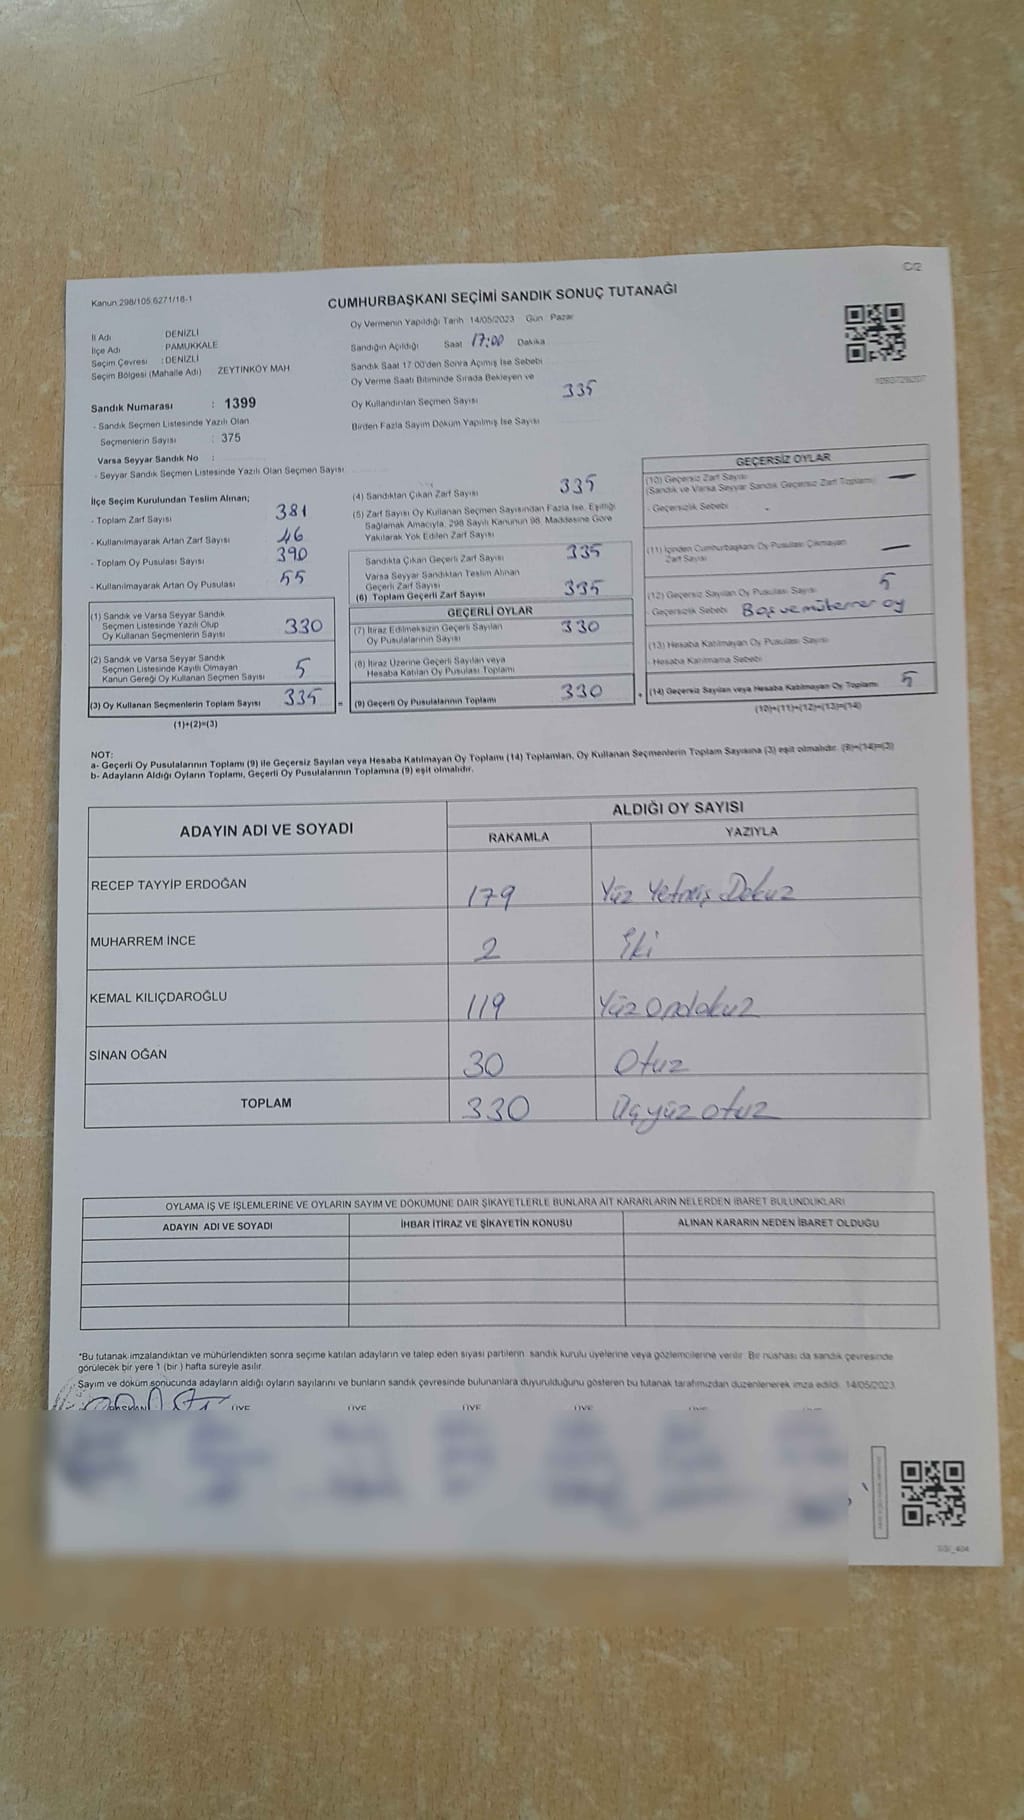 C/2
Kanun:298/105;6271/18-1
CUMHURBAŞKANI SEÇİMİ SANDIK SONUÇ TUTANAĞI
İl Adı DENİZLİ
İlçe Adı PAMUKKALE
Seçim Çevresi : DENİZLİ
Seçim Bölgesi (Mahalle Adı) ZEYTİNKÖY MAH.
Sandık Numarası : 1399
- Sandık Seçmen Listesinde Yazılı Olan
Seçmenlerin Sayısı : 375
Varsa Seyyar Sandık No :
- Seyyar Sandık Seçmen Listesinde Yazılı Olan Seçmen Sayısı
Oy Vermenin Yapıldığı Tarih 14/05/2023 Gün Pazar
Sandığın Açıldığı Saat 17:00 Dakika
Sandık Saat 17.00'den Sonra Açımış İse Sebebi
Oy Verme Saati Bitiminde Sırada Bekleyen ve
Oy Kullandırılan Seçmen Sayısı 335
Birden Fazla Sayım Döküm Yapılmış İse Sayısı
İlçe Seçim Kurulundan Teslim Alınan;
- Toplam Zarf Sayısı 381
- Kullanılmayarak Artan Zarf Sayısı 46
- Toplam Oy Pusulası Sayısı 390
- Kullanılmayarak Artan Oy Pusulası 55
(1) Sandık ve Varsa Seyyar Sandık
Seçmen Listesinde Yazılı Olup
Oy Kullanan Seçmenlerin Sayısı 330
(2) Sandık ve Varsa Seyyar Sandık
Seçmen Listesinde Kayıtlı Olmayan
Kanun Gereği Oy Kullanan Seçmen Sayısı 5
(3) Oy Kullanan Seçmenlerin Toplam Sayısı 335 =
(1)+(2)=(3)
(4) Sandıktan Çıkan Zarf Sayısı 335
(5) Zarf Sayısı Oy Kullanan Seçmen Sayısından Fazla İse, Eşitliği
Sağlamak Amacıyla, 298 Sayılı Kanunun 98. Maddesine Göre
Yakılarak Yok Edilen Zarf Sayısı
Sandıkta Çıkan Geçerli Zarf Sayısı 335
Varsa Seyyar Sandıktan Teslim Alınan
Geçerli Zarf Sayısı
(6) Toplam Geçerli Zarf Sayısı 335
GEÇERLİ OYLAR
(7) İtiraz Edilmeksizin Geçerli Sayılan
Oy Pusulalarının Sayısı 330
(8) İtiraz Üzerine Geçerli Sayılan veya
Hesaba Katılan Oy Pusulası Toplamı
(9) Geçerli Oy Pusulalarının Toplamı 330 +
GEÇERSİZ OYLAR
(10) Geçersiz Zarf Sayısı
(Sandık ve Varsa Seyyar Sandık Geçersiz Zarf Toplamı) —
- Geçersizlik Sebebi -
(11) İçinden Cumhurbaşkanı Oy Pusulası Çıkmayan
Zarf Sayısı —
(12) Geçersiz Sayılan Oy Pusulası Sayısı 5
- Geçersizlik Sebebi Boş ve mükerrer oy
(13) Hesaba Katılmayan Oy Pusulası Sayısı
- Hesaba Katılmama Sebebi
(14) Geçersiz Sayılan veya Hesaba Katılmayan Oy Toplamı 5
(10)+(11)+(12)+(13)=(14)
NOT:
a- Geçerli Oy Pusulalarının Toplamı (9) ile Geçersiz Sayılan veya Hesaba Katılmayan Oy Toplamı (14) Toplamları, Oy Kullanan Seçmenlerin Toplam Sayısına (3) eşit olmalıdır. (9)+(14)=(3)
b- Adayların Aldığı Oyların Toplamı, Geçerli Oy Pusulalarının Toplamına (9) eşit olmalıdır.
ADAYIN ADI VE SOYADI ALDIĞI OY SAYISI
RAKAMLA YAZIYLA
RECEP TAYYİP ERDOĞAN 179 Yüz Yetmiş Dokuz
MUHARREM İNCE 2 İki
KEMAL KILIÇDAROĞLU 119 Yüz Ondokuz
SİNAN OĞAN 30 Otuz
TOPLAM 330 Üçyüz otuz
OYLAMA İŞ VE İŞLEMLERİNE VE OYLARIN SAYIM VE DÖKÜMÜNE DAİR ŞİKAYETLERLE BUNLARA AİT KARARLARIN NELERDEN İBARET BULUNDUKLARI
ADAYIN ADI VE SOYADI İHBAR İTİRAZ VE ŞİKAYETİN KONUSU ALINAN KARARIN NEDEN İBARET OLDUĞU
*Bu tutanak imzalandıktan ve mühürlendikten sonra seçime katılan adayların ve talep eden siyasi partilerin sandık kurulu üyelerine veya gözlemcilerine verilir. Bir nüshası da sandık çevresinde
görülecek bir yere 1 (bir ) hafta süreyle asılır.
Sayım ve döküm sonucunda adayların aldığı oyların sayılarını ve bunların sandık çevresinde bulunanlara duyurulduğunu gösteren bu tutanak tarafımızdan düzenlenerek imza edildi. 14/05/2023
BAŞKAN ÜYE ÜYE ÜYE ÜYE